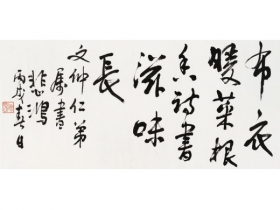 布衣
暖菜根
香诗书
滋味
長
文仲仁弟
属書
悲鴻
丙戌春日